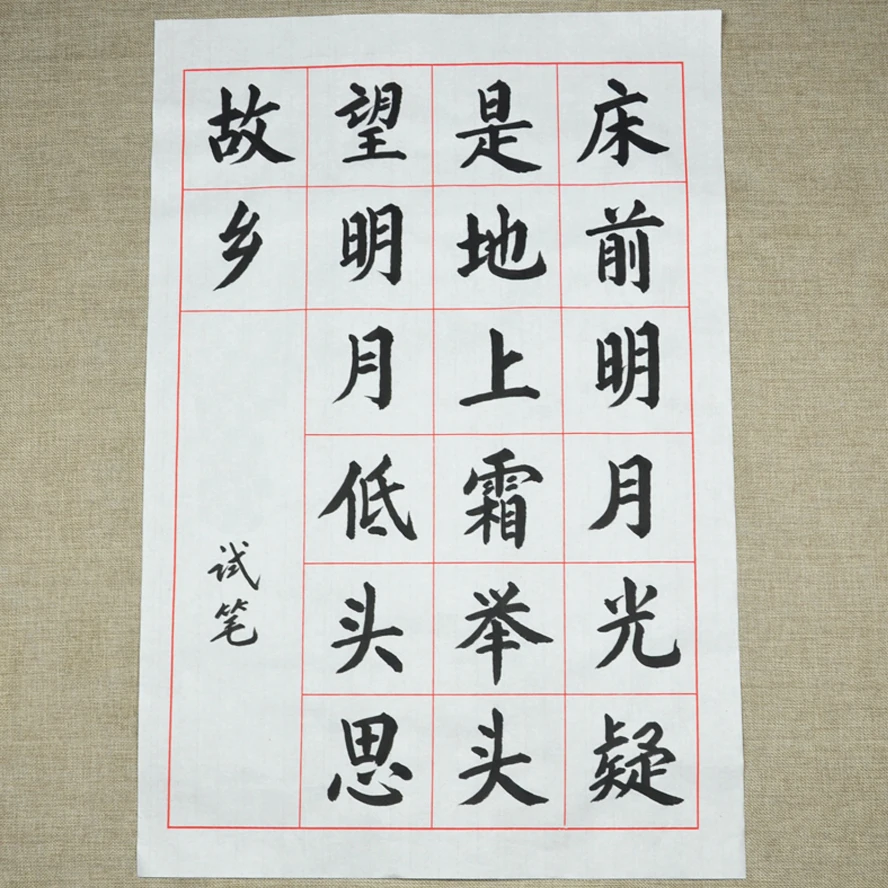 床前明月光疑
是地上霜举头
望明月低头思
故乡
试笔